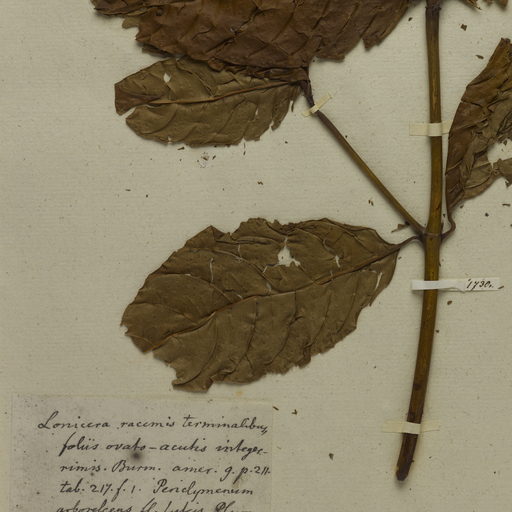 1730.
Lonicera racemis terminalibus,
foliis ovato-acutis integer-
rimis. Burm. amer. g. p. 211.
tab. 217. f. 1. Periclymenum
arborescens fl. luteis Plum